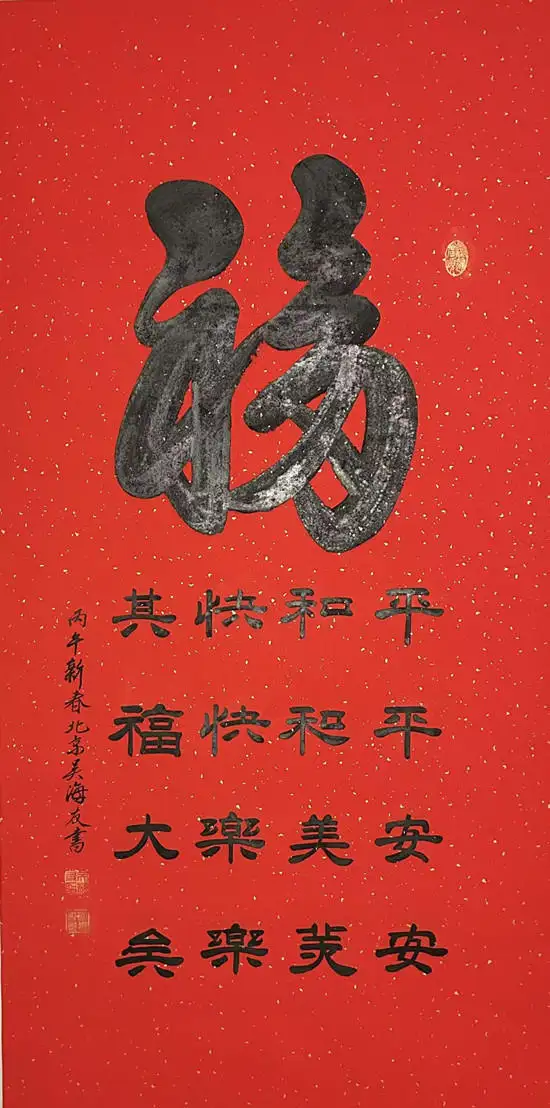 福
平平安安
和和美美
快快樂樂
其福大矣
丙午新春北京吴海友書